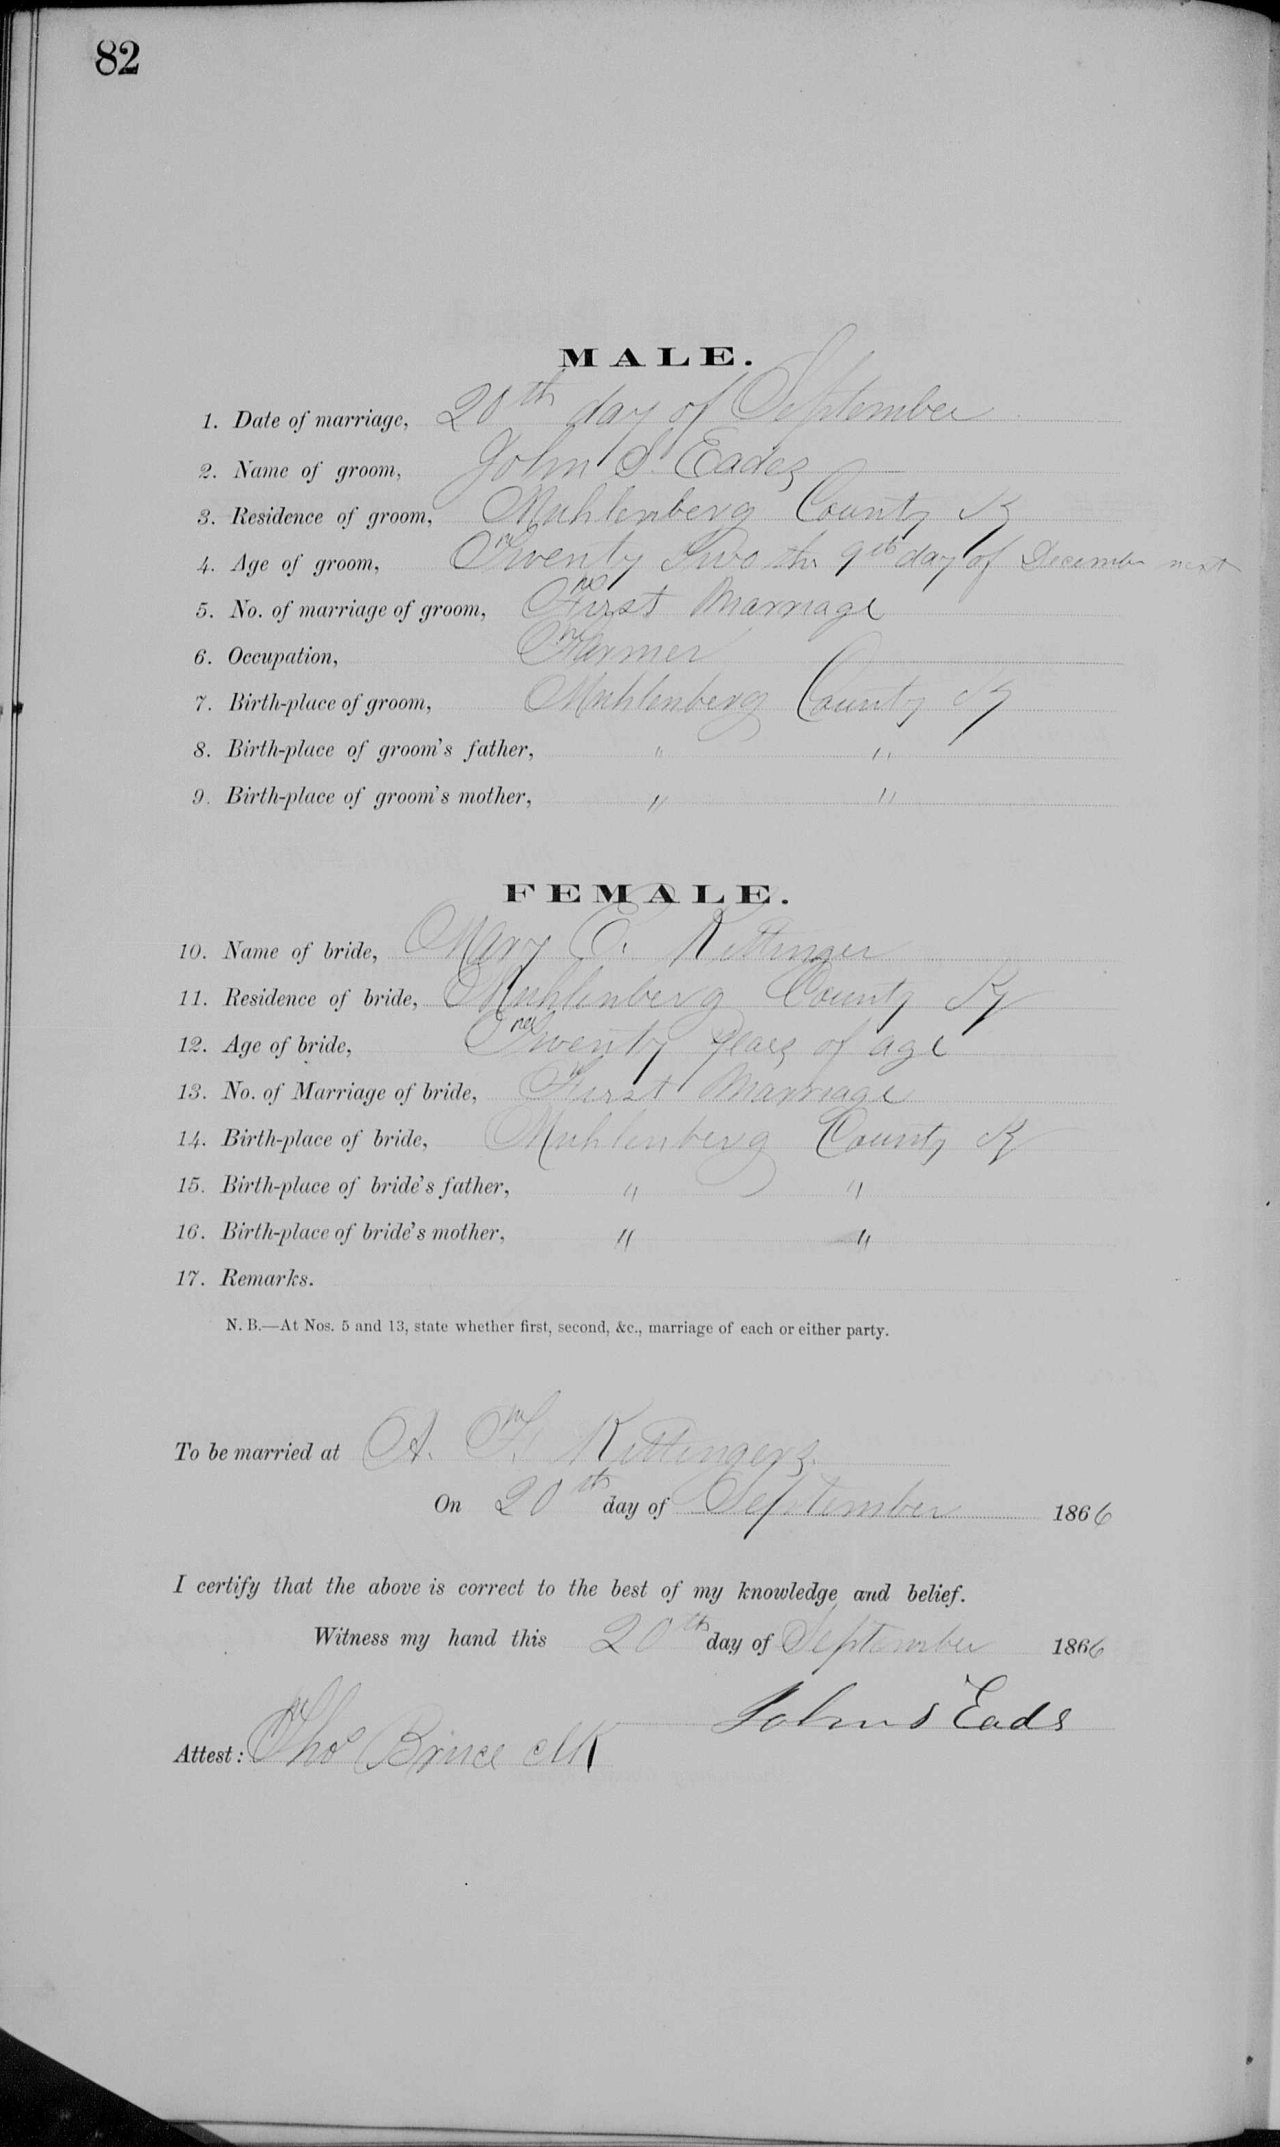 82
MALE.
1. Date of marriage, 20th day of September
2. Name of groom, John S. Eades
3. Residence of groom, Muhlenberg County Ky
4. Age of groom, Twenty Two the 9th day of December next
5. No. of marriage of groom, First Marriage
6. Occupation, Farmer
7. Birth-place of groom, Muhlenberg County Ky
8. Birth-place of groom's father, " "
9. Birth-place of groom's mother, " "
FEMALE.
10. Name of bride, Mary E. Kittinger
11. Residence of bride, Muhlenberg County Ky
12. Age of bride, Twenty years of age
13. No. of Marriage of bride, First Marriage
14. Birth-place of bride, Muhlenberg County Ky
15. Birth-place of bride's father, " "
16. Birth-place of bride's mother, " "
17. Remarks.
N. B.—At Nos. 5 and 13, state whether first, second, &c., marriage of each or either party.
To be married at A. F. Kittingers.
On 20th day of September 1866
I certify that the above is correct to the best of my knowledge and belief.
Witness my hand this 20th day of September 1866
John S Eads
Attest: Tho's Bruce clk